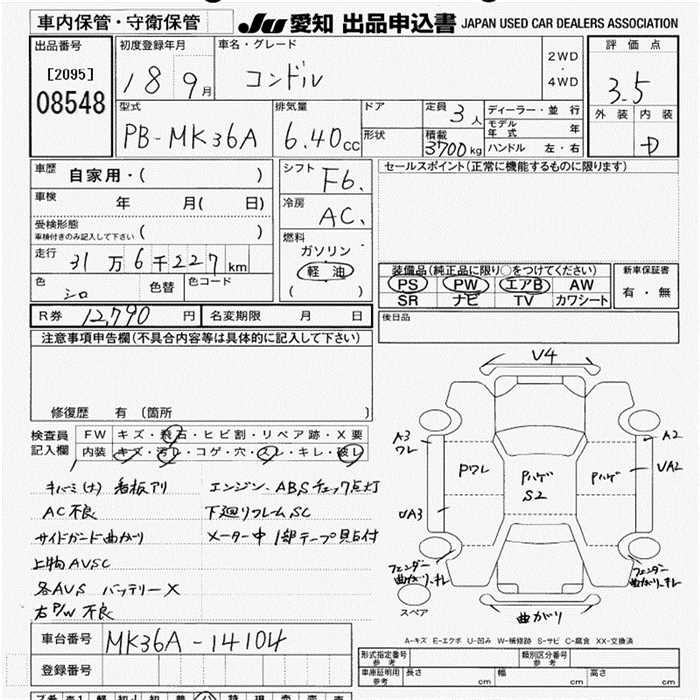 車内保管・守衛保管 JU 愛知 出品申込書 JAPAN USED CAR DEALERS ASSOCIATION
出品番号 初度登録年月 車名・グレード 2WD・4WD 評価点
[2095] 18 9月 コンドル 3.5
08548 型式 排気量 ドア 定員 3人 ディーラー・並行 外装 内装
PB-MK36A 6.40cc 形状 積載 3700kg モデル年式 年 D
ハンドル 左・右
車歴 自家用・( ) シフト F6. セールスポイント(正常に機能するものに限ります)
車検 年 月( 日) 冷房 AC.
受検形態 ( )
車検付きのみ記入して下さい
燃料 ガソリン
走行 31万6千227km 軽油 装備品(純正品に限り○をつけてください) 新車保証書
色 シロ 色替 色コード ( ) PS PW エアB AW 有・無
SR ナビ TV カワシート
R券 12,790円 名変期限 月 日 後日品
注意事項申告欄(不具合内容等は具体的に記入して下さい)
修復歴 有(箇所 )
検査員記入欄 FW キズ・飛石・ヒビ割・リペア跡・X要
内装 キズ・汚レ・コゲ・穴・スレ・キレ・破レ
キバミ(大) 看板アリ エンジン、ABSチェック点灯
AC不良 下廻リフレームSC
サイドガード曲がり メーター中 1部テープ貼付
上物AVSC
各AVS バッテリーX
右P/W不良
V4
A3 ワレ A2
Pワレ Pハゲ S2 Pハゲ UA2
UA3
フェンダー曲がり、キレ フェンダー曲がり、キレ
スペア 曲がり
A-キズ E-エクボ U-凹み W-補修跡 S-サビ C-腐食 XX-交換済
車台番号 MK36A-14104
登録番号
形式指定番号 参考 類別区分番号 参考
車庫証明用 参考 長さ cm 幅 cm 高さ cm